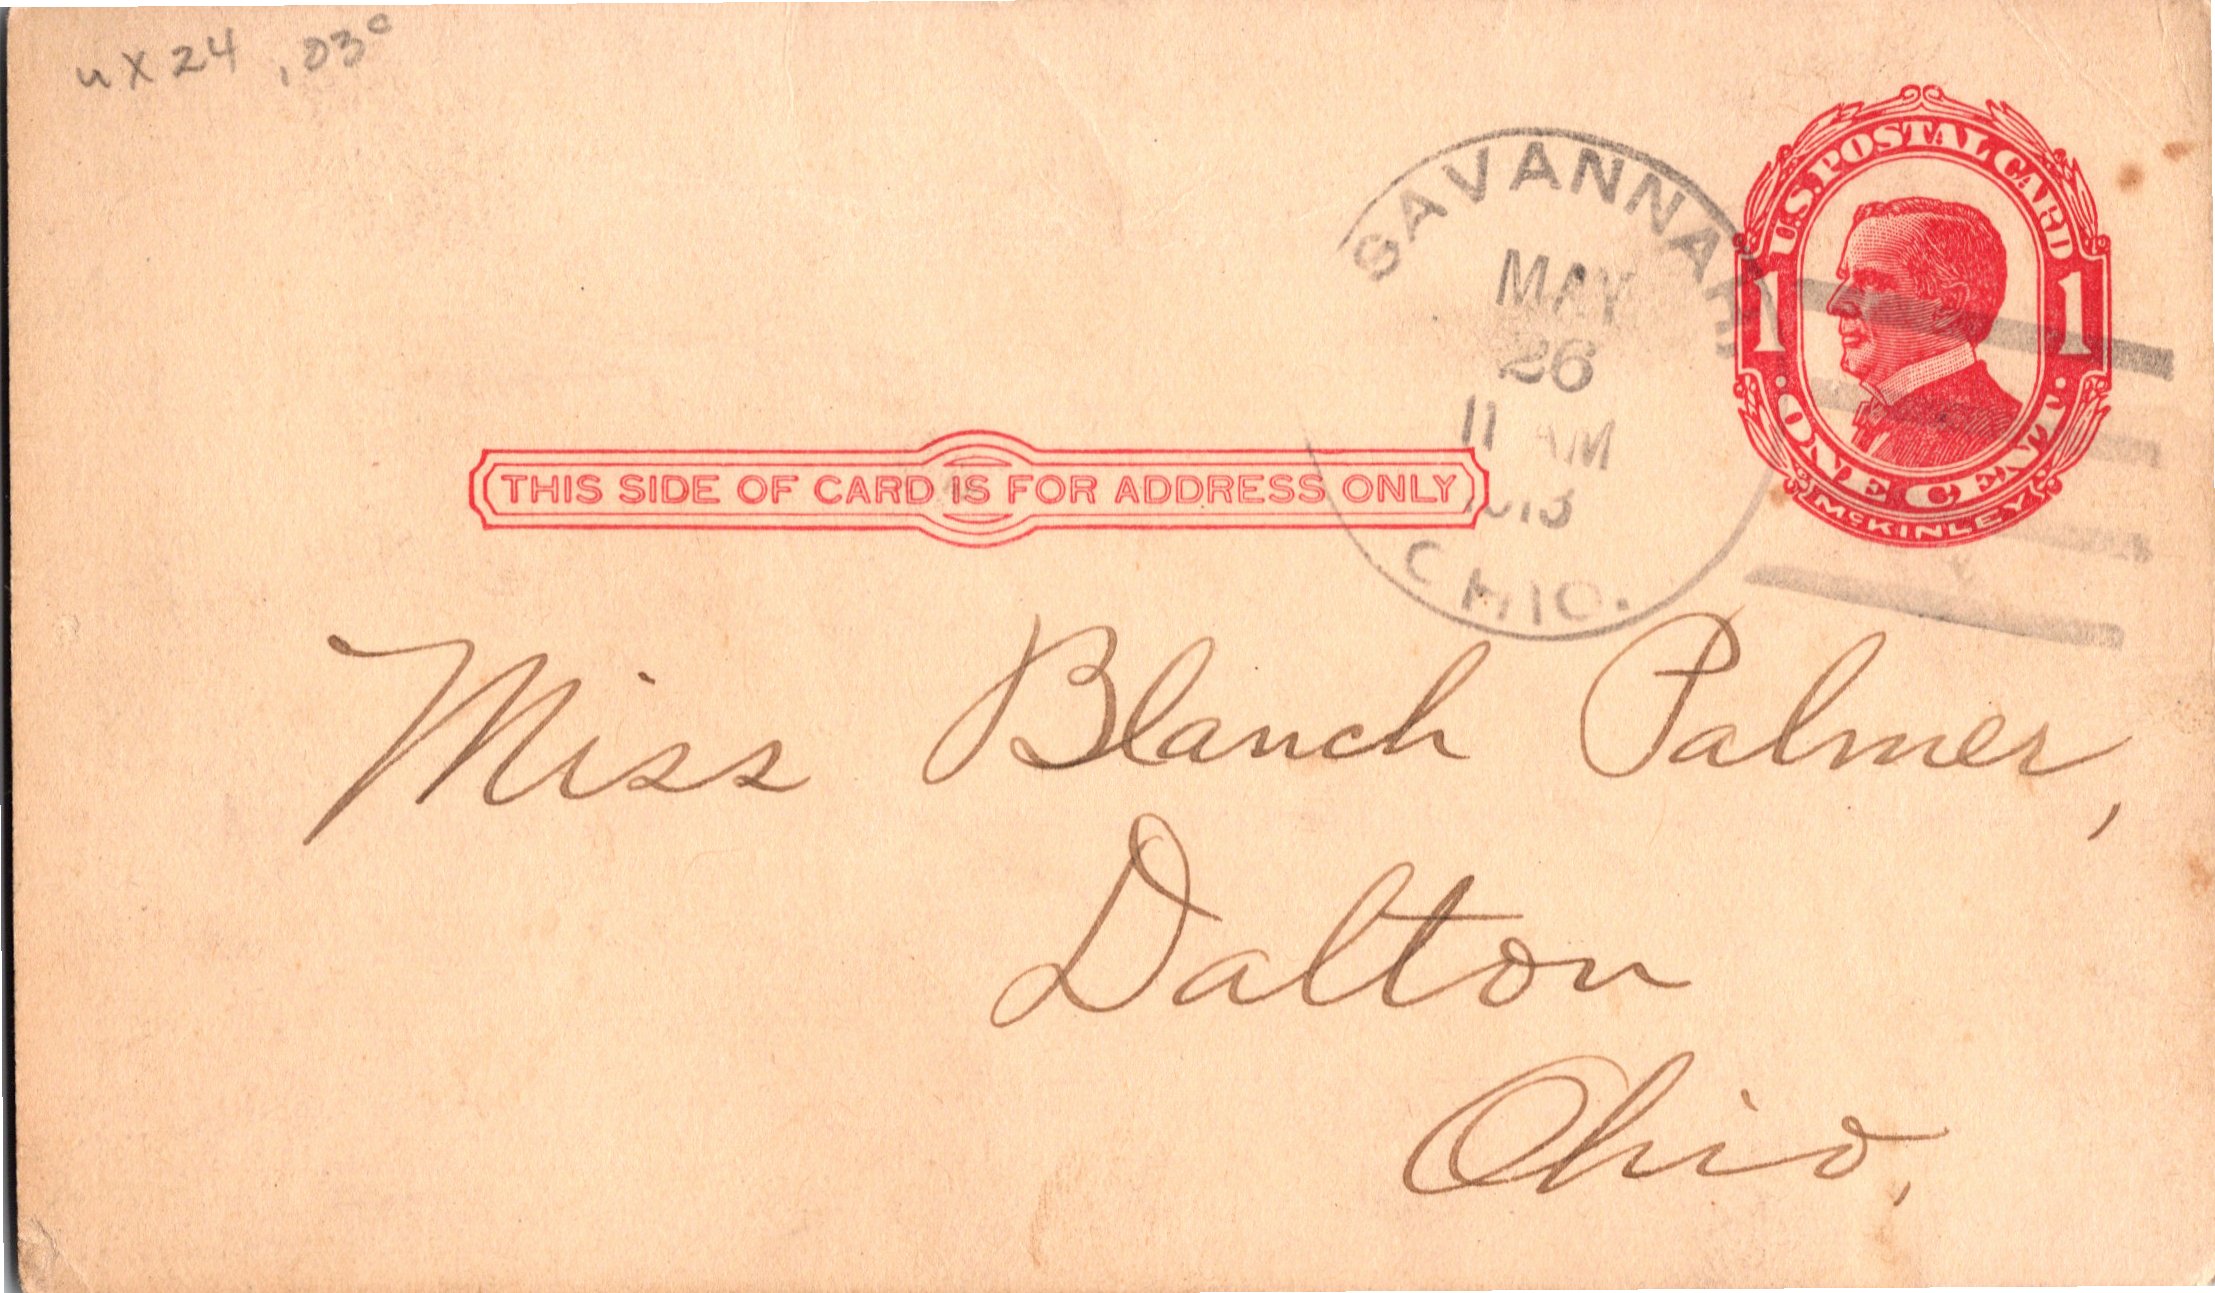 ux24 .03c
U.S. POSTAL CARD
1 1
ONE CENT
McKINLEY
SAVANNAH
MAY
26
11 AM
1913
OHIO.
THIS SIDE OF CARD IS FOR ADDRESS ONLY
Miss Blanch Palmer,
Dalton
Ohio.